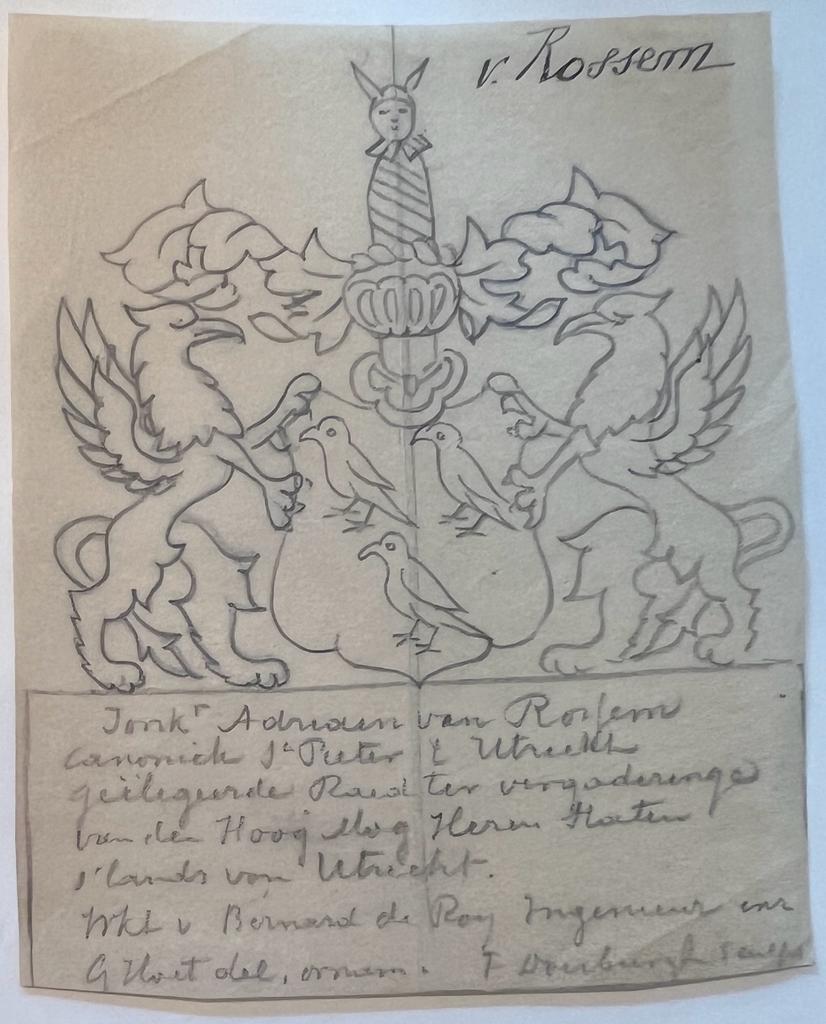 v. Rossem
Jonkr Adriaen van Rossem
Canonick St Pieter t Utrecht
geëlegeerde Raed ter vergaderinge
van de Hoog Mog Heren Staten
s'lands von Utrecht.
Wkt v Bernard de Roy Ingenieur enz
G Hoet del, ornem. F Doesburgh sculps